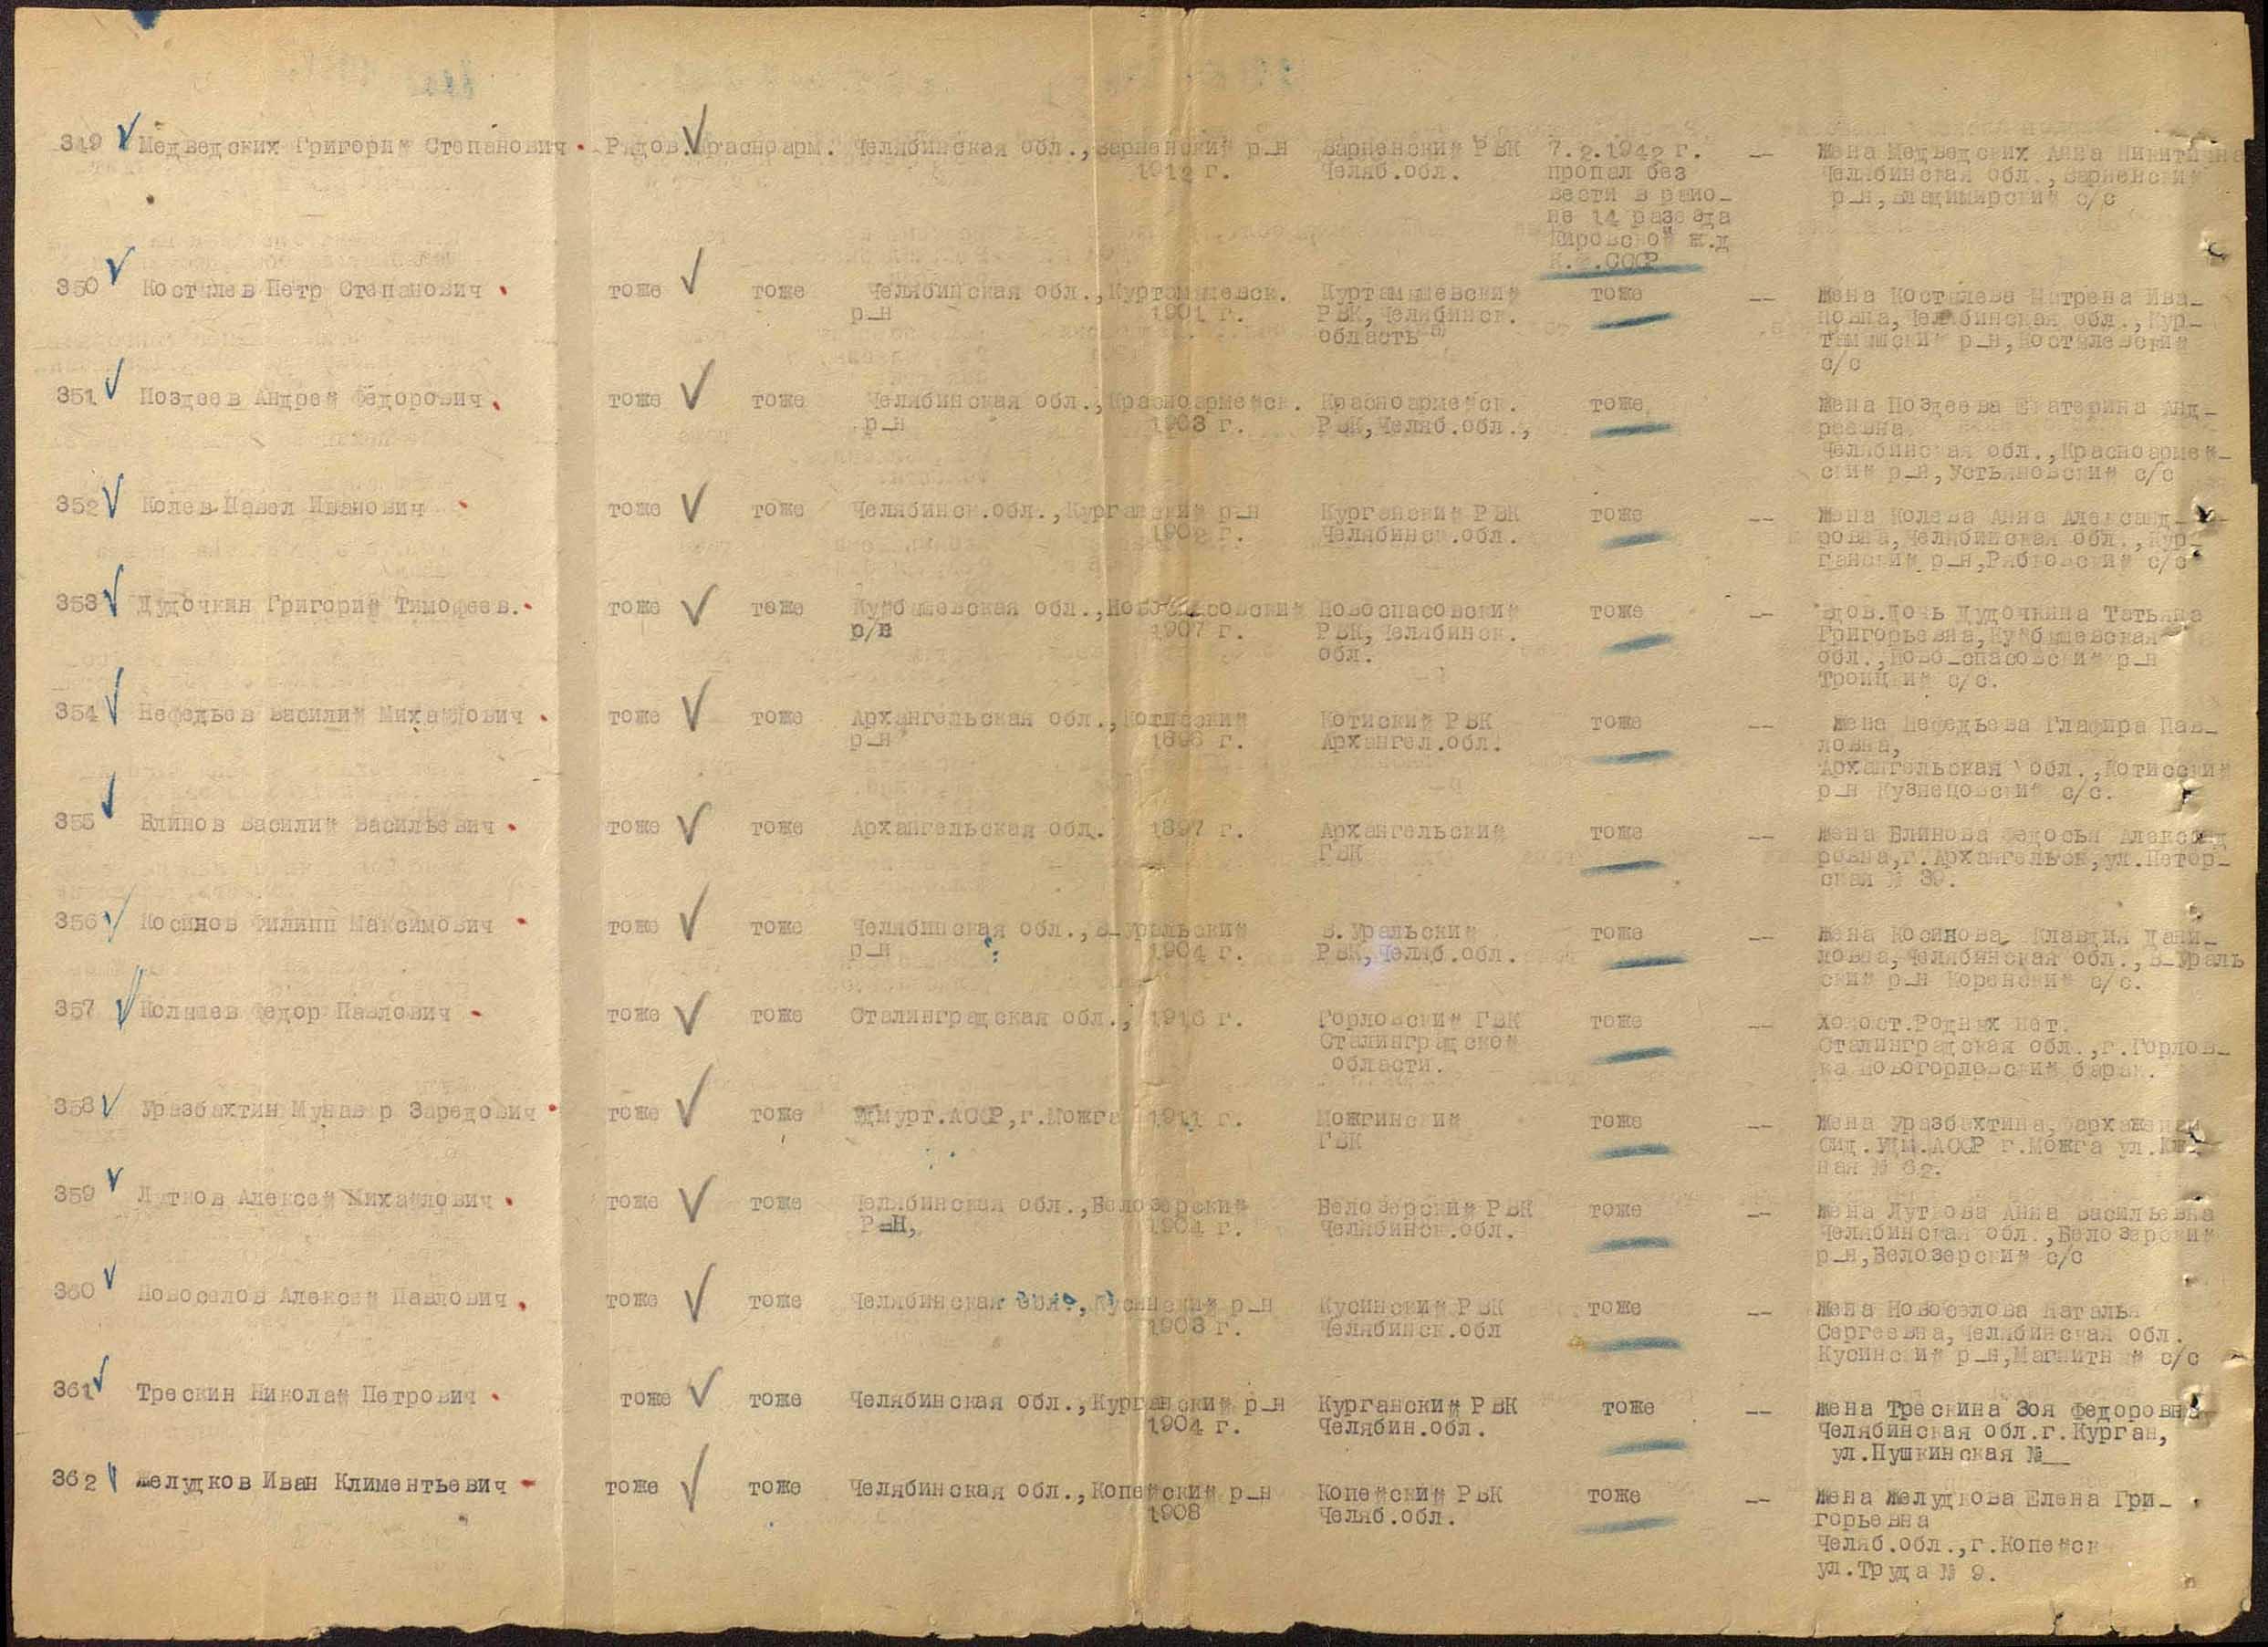 349 Медведских Григорий Степанович Рядов. Красноарм. Челябинская обл., Варненский р-н Варненский РВК 7.2.1942 г. -- Жена Медведских Анна Никитична
1912 г. Челяб.обл. пропал без Челябинская обл., Варненский
вести в райо- р-н, Владимирский с/с
не 14 разъезда
Кировской ж.д
К.Ф.СССР
350 Костылев Петр Степанович тоже тоже Челябинская обл., Куртамышевск. Куртамышевский тоже -- Жена Костылева Матрена Ива-
р-н 1901 г. РВК, Челябинск. новна, Челябинская обл., Кур-
область тамышский р-н, Костылевский
с/с
351 Поздеев Андрей Федорович тоже тоже Челябинская обл., Красноармейск. Красноармейск. тоже Жена Поздеева Екатерина Анд-
р-н 1903 г. РВК, Челяб.обл., реевна
Челябинская обл., Красноармей-
ский р-н, Устьяновский с/с
352 Колев Павел Иванович тоже тоже Челябинск.обл., Курганский р-н Курганский РВК тоже -- Жена Колева Анна Александ-
Челябинск.обл. ровна, Челябинская обл., Кур-
ганский р-н, Рябковский с/с
353 Дудочкин Григорий Тимофеев. тоже тоже Куйбышевская обл., Ново-Спасовский Новоспасовский тоже -- Вдов.Дочь Дудочкина Татьяна
р/н 1907 г. РВК, Челябинск. Григорьевна, Куйбышевская
обл. обл., Ново-спасовский р-н
Троицкий с/с.
354 Нефедьев Василий Михайлович тоже тоже Архангельская обл., Котисский Котиский РВК тоже -- Жена Нефедьева Глафира Пав-
р-н 1896 г. Архангел.обл. ловна,
Архангельская обл., Котисский
р-н Кузнецовский с/с.
355 Блинов Василий Васильевич тоже тоже Архангельская обл. 1897 г. Архангельский тоже -- Жена Блинова Федосья Александ
ГВК ровна, г.Архангельск, ул.Петор-
ская № 39.
356 Косинов Филипп Максимович тоже тоже Челябинская обл., В-Уральский В.Уральский тоже -- Жена Косинова Клавдия Дани-
р-н 1904 г. РВК, Челяб.обл. ловна, Челябинская обл., В-Ураль
ский р-н Коренский с/с.
357 Коляшев Федор Павлович тоже тоже Сталинградская обл., 1916 г. Горловский ГВК тоже -- Холост.Родных нет.
Сталинградской Сталинградская обл., г.Горлов-
области. ка Новогорловский барак.
358 Уразбахтин Мунавир Заредович тоже тоже Удмурт.АССР, г.Можга 1911 г. Можгинский тоже -- Жена Уразбахтина,
ГВК УДМ.АССР г.Можга ул.Юж-
ная № 62.
359 Лутков Алексей Михайлович тоже тоже Челябинская обл., Белозерский Белозерский РВК тоже -- Жена Луткова Анна Васильевна
Р-Н, 1904 г. Челябинск.обл. Челябинская обл., Белозерский
р-н, Белозерский с/с
360 Новоселов Алексей Павлович тоже тоже Челябинская обл., Кусинский р-н Кусинский РВК тоже -- Жена Новоселова Наталья
1903 г. Челябинск.обл Сергеевна, Челябинская обл.
Кусинский р-н, Магнитный с/с
361 Трескин Николай Петрович тоже тоже Челябинская обл., Курганский р-н Курганский РВК тоже -- Жена Трескина Зоя Федоровна
1904 г. Челябин.обл. Челябинская обл.г.Курган,
ул.Пушкинская №__
362 Желудков Иван Климентьевич тоже тоже Челябинская обл., Копейский р-н Копейский РВК тоже -- Жена Желудкова Елена Гри-
1908 Челяб.обл. горьевна
Челяб.обл., г.Копейск
ул.Труда № 9.